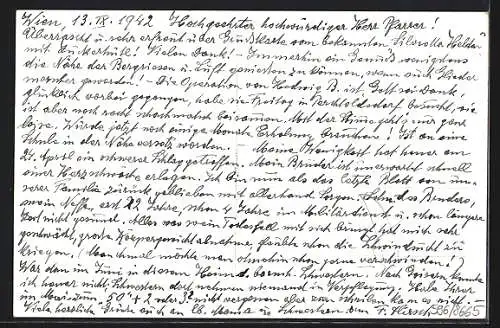 Wien, 13. IX. 1942 Hochgeehrter hochwürdiger Herr Pfarrer!
Überrascht u. sehr erfreut über Grußkarte vom bekannten Silvretta
mit Vielen Dank! - Immerhin ein Genuß wenigstens
die Nähe der Bergriesen u. Luft genießen zu können, wenn auch Glieder
morscher geworden! - Die Operation von Hedwig B. ist Gott sei Dank
glücklich vorbei gegangen, habe sie Freitag in Perchtoldsdorf besucht, sie
ist aber noch recht schwach beisammen. Mit der Stimme geht's nur ganz
leise. Würde jetzt noch einige Monate Erholung brauchen! Ist an eine
Schule in der Nähe versetzt worden. - Meine Wenigkeit hat heuer am
21. April ein schwerer Schlag getroffen. Mein Bruder ist unerwartet schnell
einer Herzschwäche erlegen. Ich bin nun als das letzte Blatt von un-
serer Familie zurück geblieben mit allerhand Sorgen. Sohn des Bruders,
mein Neffe, erst 22 Jahre, schon 4 Jahre im Militärdienst u. schon längere
Zeit nicht gesund. Alles was so ein Todesfall mit sich bringt hat mich sehr
geschwächt, große Körpergewichtabnahme, glaubte schon die Schwindsucht zu
kriegen. (Manchmal möchte man ohnehin schon gerne verschwinden!)
War dann im Juni in diesem Heim d. barmh. Schwestern. Nach Goisern konnte
ich heuer nicht, Schwestern dort nehmen niemand in Verpflegung. Habe Ihrer
im nicht vergessen aber zum schreiben kam es nicht. -
Viele herzliche Grüße auch an lb. Mama u. Schwestern von
5868665